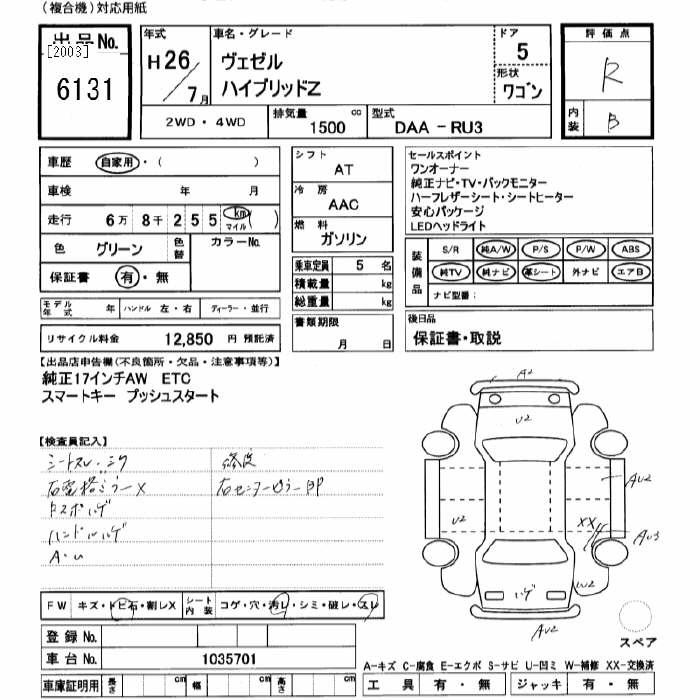 (複合機)対応用紙
出品No.
[2003]
6131
年式
H26/7月
車名・グレード
ヴェゼル
ハイブリッドZ
ドア
5
形状
ワゴン
2WD・4WD
排気量 1500 cc
型式 DAA-RU3
評価点
R
内装 B
車歴 自家用・( )
車検 年 月
走行 6万 8千 2 5 5 km マイル ( )
色 グリーン 色替 カラーNo.
保証書 有・無
モデル年式 年 ハンドル 左・右 ディーラー・並行
リサイクル料金 12,850 円 預託済
シフト
AT
冷房
AAC
燃料
ガソリン
乗車定員 5 名
積載量 kg
総重量 kg
書類期限
月 日
セールスポイント
ワンオーナー
純正ナビ・TV・バックモニター
ハーフレザーシート・シートヒーター
安心パッケージ
LEDヘッドライト
装備品
S/R 純A/W P/S P/W ABS
純TV 純ナビ 革シート 外ナビ エアB
ナビ型番:
後日品
保証書・取説
【出品店申告欄(不良箇所・欠品・注意事項等)】
純正17インチAW ETC
スマートキー プッシュスタート
【検査員記入】
シートスレ・シワ
右電格ミラーX
ドスポハゲ
ハンドルハゲ
A・U
右センターピラー
FW キズ・トビ石・割レX
シート内装 コゲ・穴・汚レ・シミ・破レ・スレ
登録No.
車台No. 1035701
車庫証明用 長さ cm 幅 cm 高さ cm
A2
U2
AU2
U2
XX
AU3
ハゲ
W2
AU2
スペア
A-キズ C-腐食 E-エクボ S-サビ U-凹ミ W-補修 XX-交換済
工具 有・無 ジャッキ 有・無